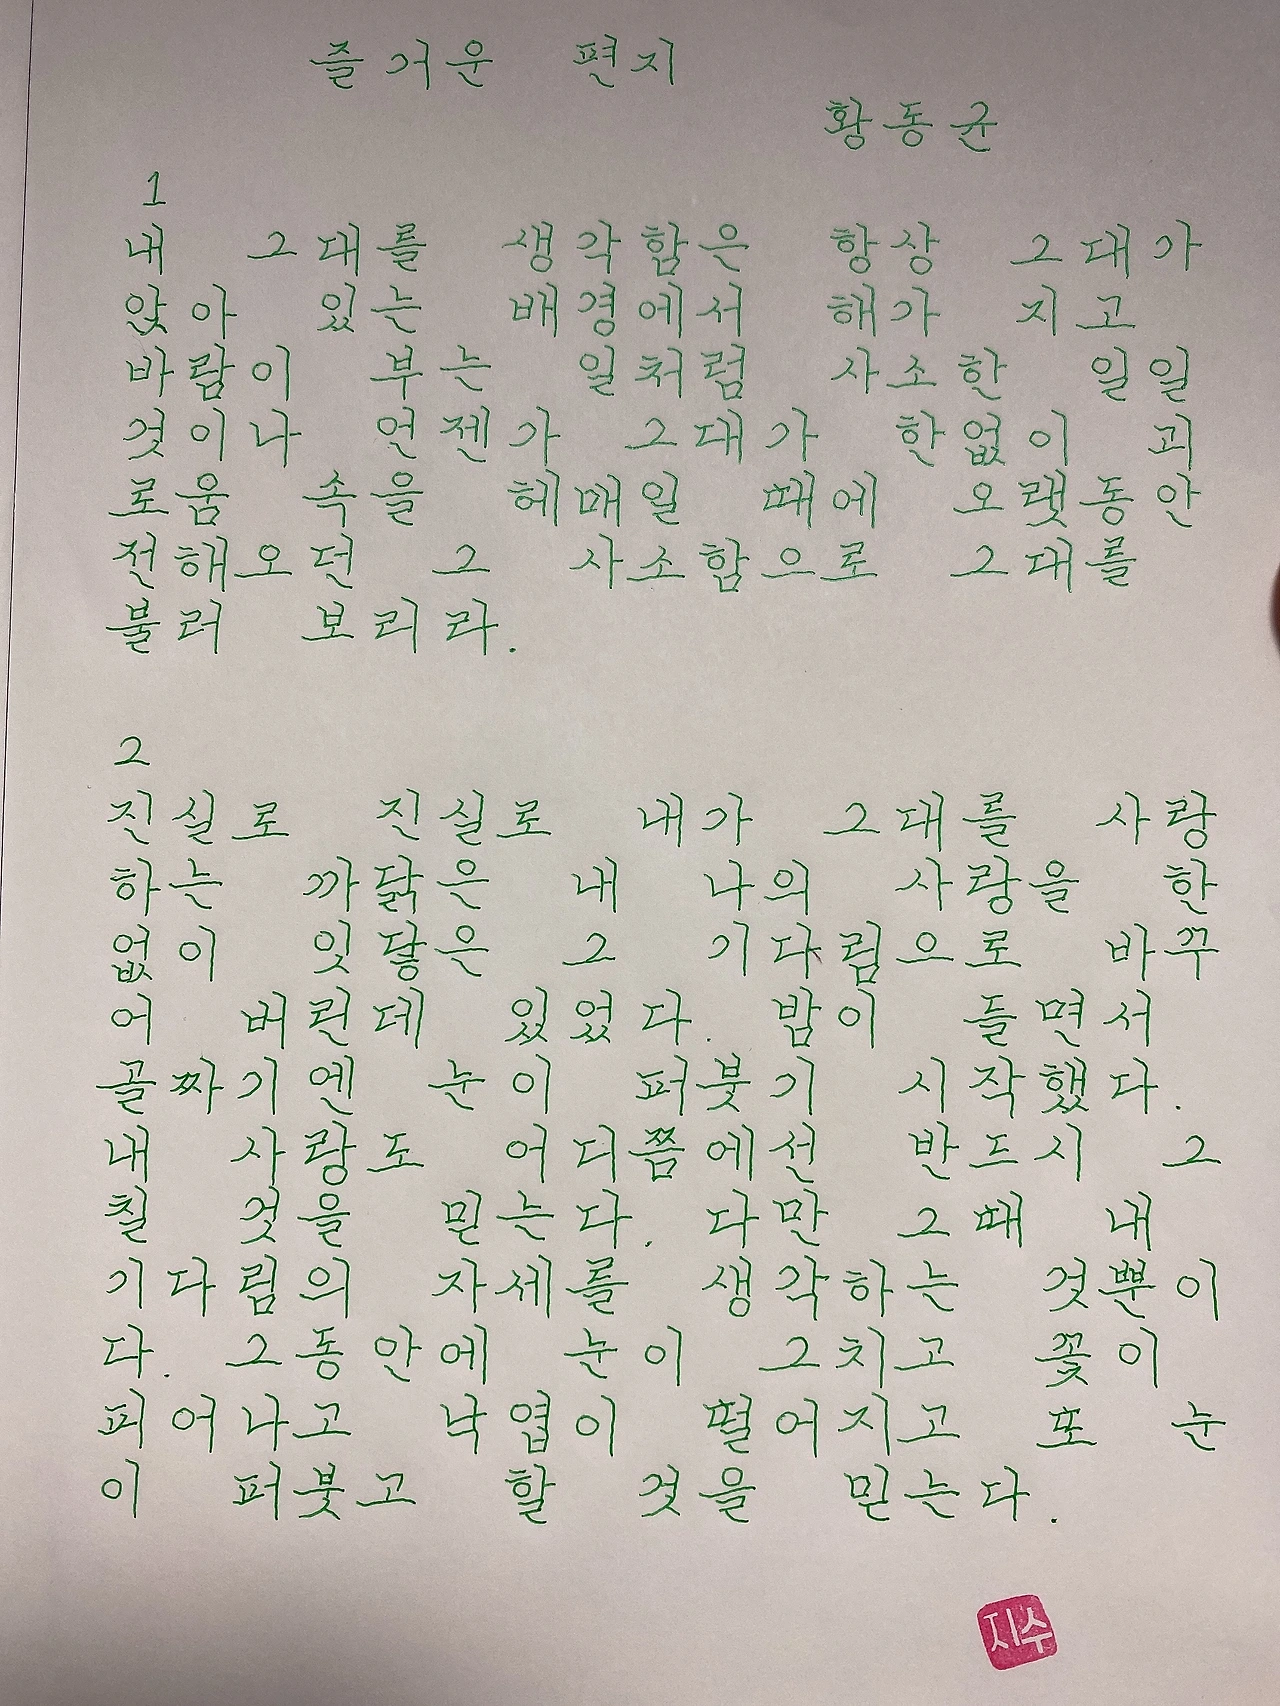 즐거운 편지
황동균
1
내 그대를 생각함은 항상 그대가
앉아 있는 배경에서 해가 지고
바람이 부는 일처럼 사소한 일일
것이나 언젠가 그대가 한없이 괴
로움 속을 헤매일 때에 오랫동안
전해오던 그 사소함으로 그대를
불러 보리라.
2
진실로 진실로 내가 그대를 사랑
하는 까닭은 내 나의 사랑을 한
없이 잇닿은 그 기다림으로 바꾸
어 버린데 있었다. 밤이 들면서
골짜기엔 눈이 퍼붓기 시작했다.
내 사랑도 어디쯤에선 반드시 그
칠 것을 믿는다. 다만 그때 내
기다림의 자세를 생각하는 것뿐이
다. 그동안에 눈이 그치고 꽃이
피어나고 낙엽이 떨어지고 또 눈
이 퍼붓고 할 것을 믿는다.
지수